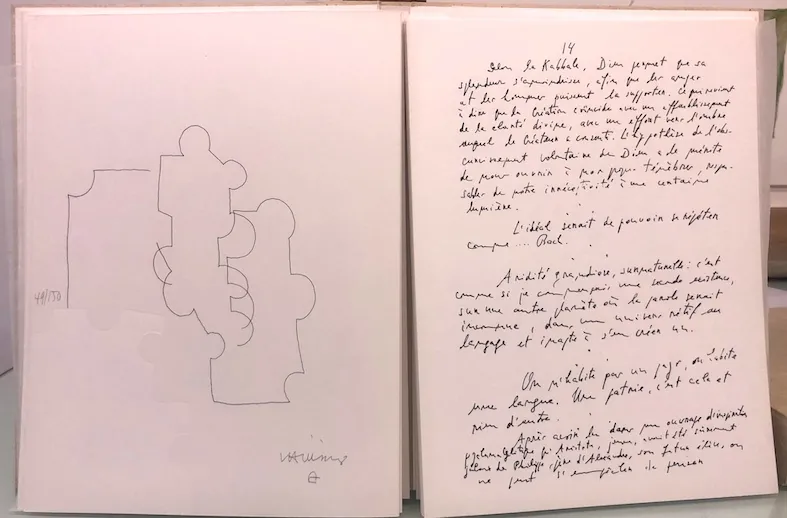 49/150
14
Selon la Kabbale, Dieu permet que sa
splendeur s'amoindrisse, afin que les anges
et les hommes puissent la supporter. Ce qui revient
à dire que la Création coïncide avec un affaiblissement
de la clarté divine, avec un effort vers l'ombre
auquel le Créateur a consenti. L'hypothèse de l'obs-
curcissement volontaire de Dieu a le mérite
de nous ouvrir à nos propres ténèbres, respon-
sables de notre irréceptivité à une certaine
lumière.
L'idéal serait de pouvoir se répéter
comme .... Bach.
Aridité grandiose, surnaturelle : c'est
comme si je commençais une seconde existence,
sur une autre planète où la parole serait
inconnue, dans un univers rétif au
langage et inapte à s'en créer un.
On n'habite pas un pays, on habite
une langue. Une patrie, c'est cela et
rien d'autre.
Après avoir lu dans un ouvrage d'inspiration
psychanalytique qu'Aristote, jeune, avait été sûrement
jaloux de Philippe, père d'Alexandre, son futur élève, on
ne peut s'empêcher de penser